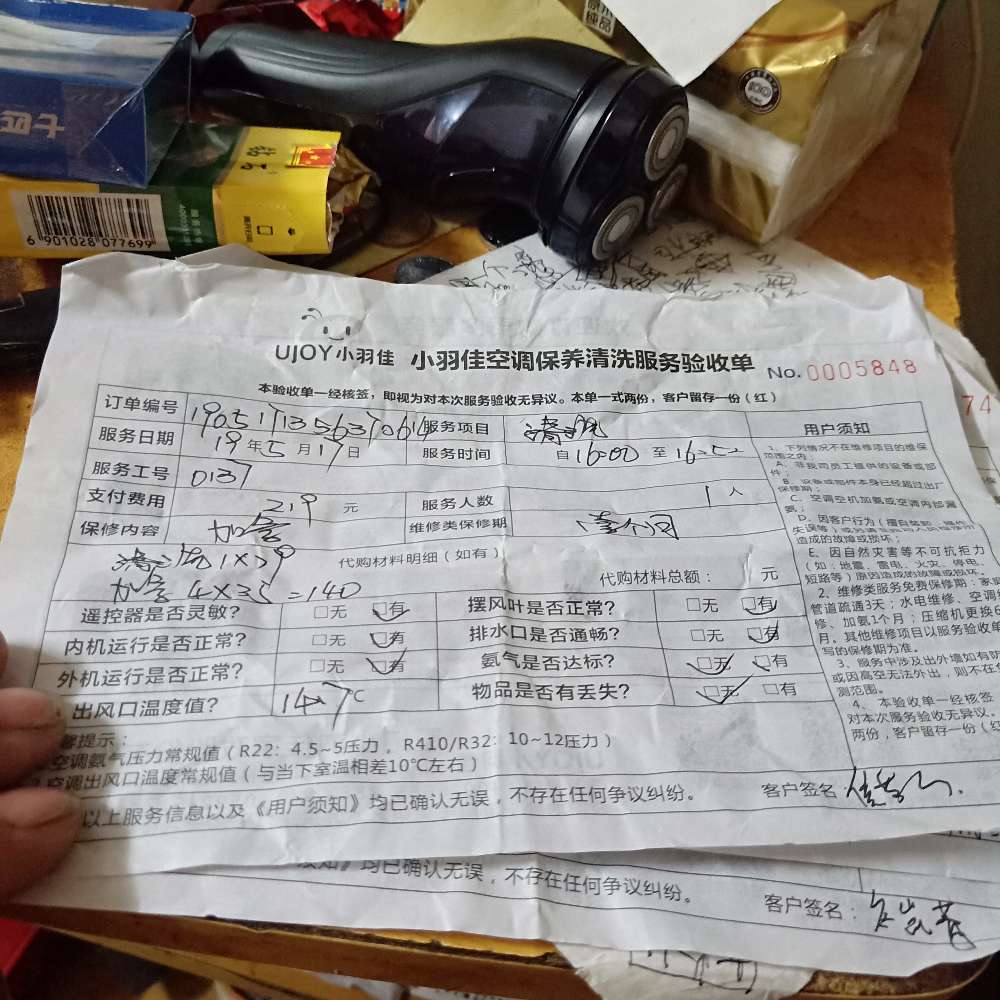 6 901028 077699
UJOY小羽佳 小羽佳空调保养清洗服务验收单 No. 0005848
74
本验收单一经核签，即视为对本次服务验收无异议。本单一式两份，客户留存一份（红）
订单编号 服务项目 清洗 用户须知
服务日期 19年5月17日 服务时间 自16:00至
服务工号 0137
支付费用 219 元 服务人数 1人
保修内容 加氨 维修类保修期 壹个月
清洗 代购材料明细（如有）
加氨 4×35=140 代购材料总额： 元
遥控器是否灵敏？ □无 □有 摆风叶是否正常？ □无 □有
内机运行是否正常？ □无 □有 排水口是否通畅？ □无 □有
外机运行是否正常？ □无 □有 氨气是否达标？ □无 □有
出风口温度值？ ℃ 物品是否有丢失？ □无 □有
1、下列情况不在维修项目的维保
范围之内：
A、非我司员工提供的设备或部
件；
B、设备或部件本身已经超过出厂
保修期；
C、空调空机加氨或空调内部漏
氨；
D、因客户行为
造成的故障或损坏；
E、因自然灾害等不可抗拒力
（如：地震、雷电、火灾、停电、
短路等）原因造成的故障或损坏。
2、维修类服务免费保修期：家庭
管道疏通3天；水电维修、空调维
修、加氨1个月；压缩机更换6
月。其他维修项目以服务验收单
写的保修期为准。
3、服务中涉及出外墙如有防
或因高空无法外出，则不在
测范围。
4、本验收单一经核签
对本次服务验收无异议。
两份，客户留存一份（红
提示：
空调氨气压力常规值（R22：4.5~5压力，R410/R32：10~12压力）
空调出风口温度常规值（与当下室温相差10℃左右）
以上服务信息以及《用户须知》均已确认无误，不存在任何争议纠纷。 客户签名
须知》均已确认无误，不存在任何争议纠纷。 客户签名：